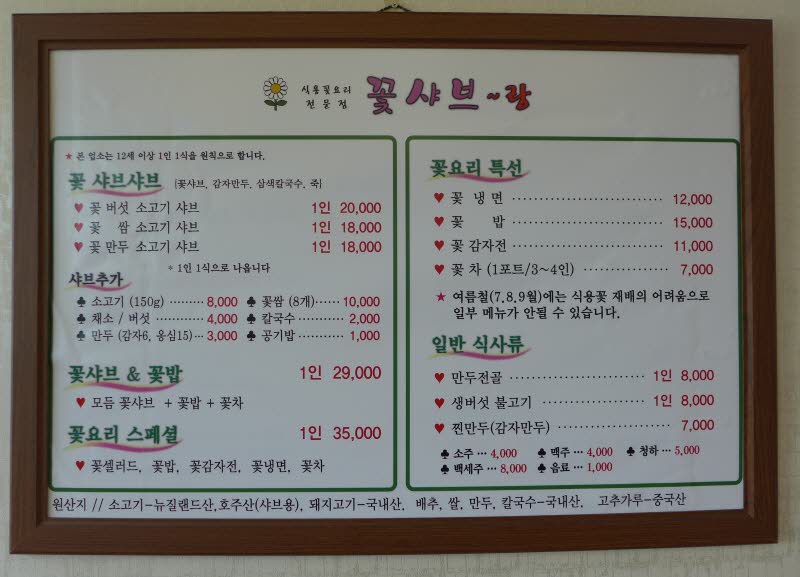 식용꽃요리
전문점
꽃샤브~랑
★ 본 업소는 12세 이상 1인 1식을 원칙으로 합니다.
꽃 샤브샤브 (꽃샤브, 감자만두, 삼색칼국수, 죽)
♥ 꽃 버섯 소고기 샤브 1인 20,000
♥ 꽃 쌈 소고기 샤브 1인 18,000
♥ 꽃 만두 소고기 샤브 1인 18,000
* 1인 1식으로 나옵니다
샤브추가
♣ 소고기 (150g) ········· 8,000 ♣ 꽃쌈 (8개)······ 10,000
♣ 채소 / 버섯 ············ 4,000 ♣ 칼국수 ············ 2,000
♣ 만두 (감자6, 옹심15)··· 3,000 ♣ 공기밥 ············ 1,000
꽃샤브 & 꽃밥 1인 29,000
♥ 모듬 꽃샤브 + 꽃밥 + 꽃차
꽃요리 스페셜 1인 35,000
♥ 꽃샐러드, 꽃밥, 꽃감자전, 꽃냉면, 꽃차
꽃요리 특선
♥ 꽃 냉 면 ······························ 12,000
♥ 꽃 밥 ······························ 15,000
♥ 꽃 감자전 ···························· 11,000
♥ 꽃 차 (1포트/3~4인) ················ 7,000
★ 여름철(7.8.9월)에는 식용꽃 재배의 어려움으로
일부 메뉴가 안될 수 있습니다.
일반 식사류
♥ 만두전골 ························ 1인 8,000
♥ 생버섯 불고기 ···················· 1인 8,000
♥ 찐만두(감자만두) ···················· 7,000
♣ 소주 ··· 4,000 ♣ 맥주 ··· 4,000 ♣ 청하 ··· 5,000
♣ 백세주 ··· 8,000 ♣ 음료 ··· 1,000
원산지 // 소고기-뉴질랜드산,호주산(샤브용), 돼지고기-국내산, 배추, 쌀, 만두, 칼국수-국내산, 고추가루-중국산